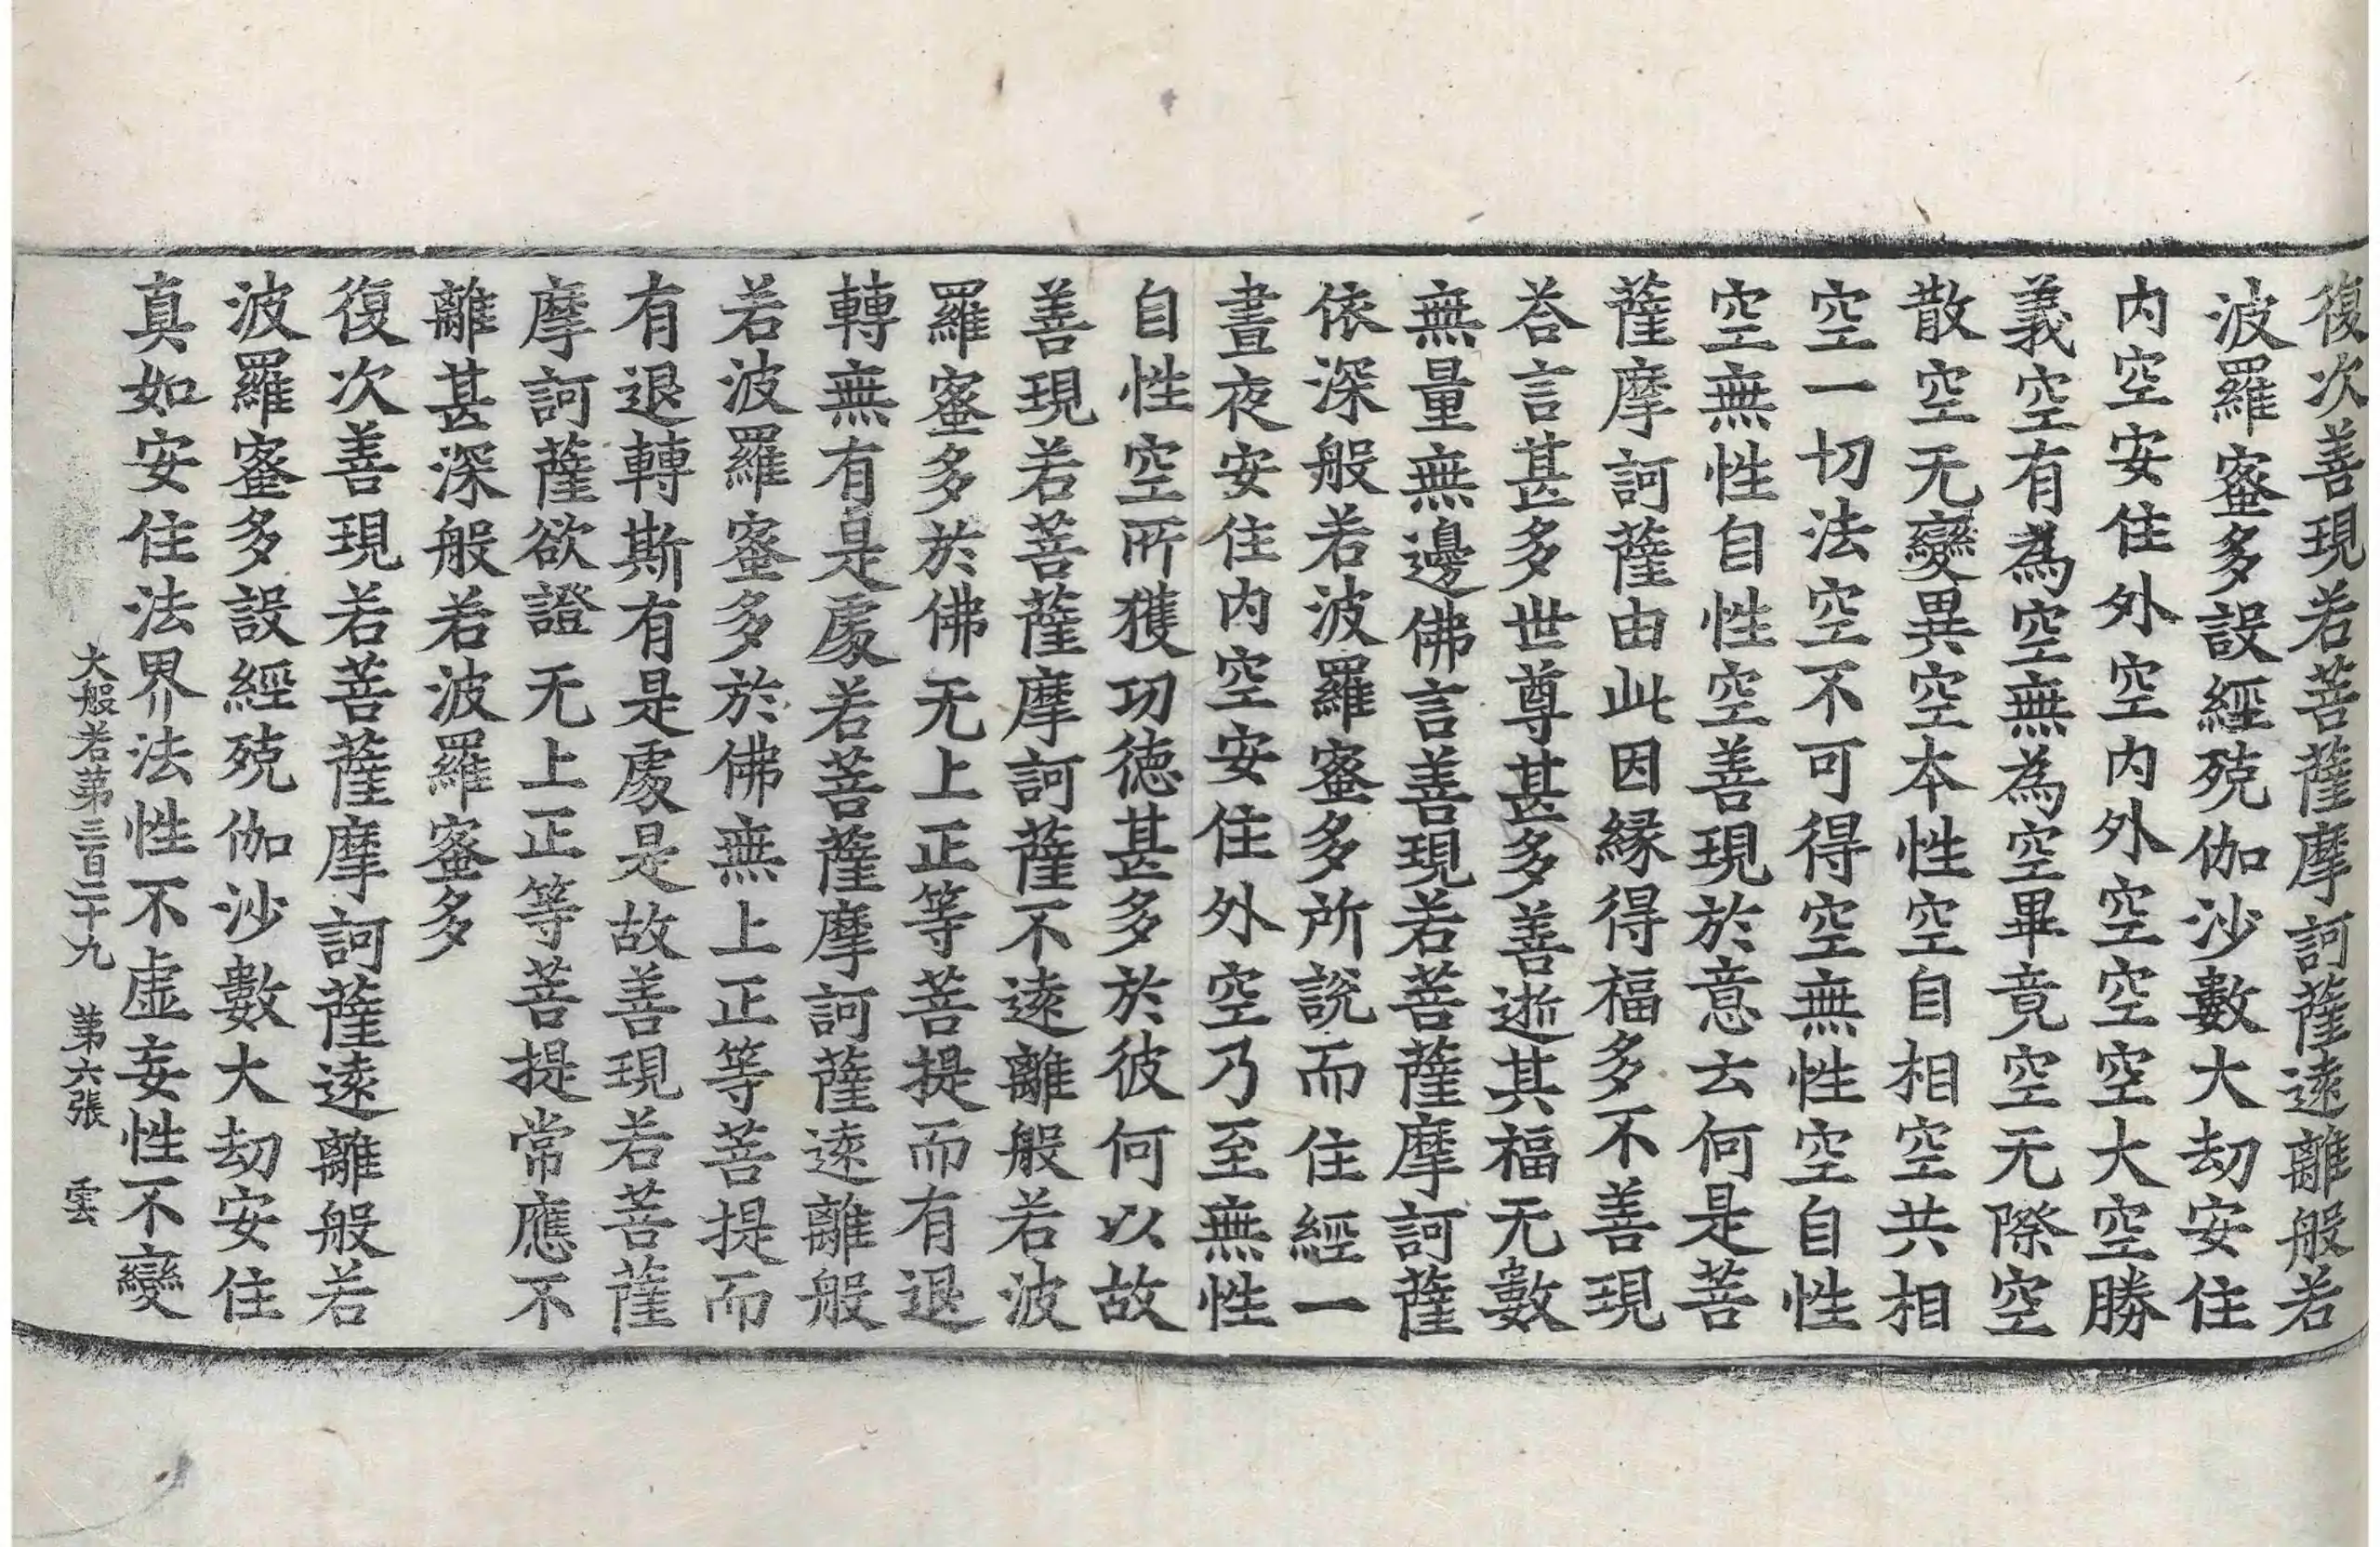 復次善現若菩薩摩訶薩遠離般若
波羅蜜多設經殑伽沙數大劫安住
内空安住外空内外空空空大空勝
義空有為空無為空畢竟空无際空
散空无變異空本性空自相空共相
空一切法空不可得空無性空自性
空無性自性空善現於意云何是菩
薩摩訶薩由此因縁得福多不善現
荅言甚多世尊甚多善逝其福无數
無量無邊佛言善現若菩薩摩訶薩
依深般若波羅蜜多所說而住經一
晝夜安住内空安住外空乃至無性
自性空所獲功德甚多於彼何以故
善現若菩薩摩訶薩不遠離般若波
羅蜜多於佛无上正等菩提而有退
轉無有是處若菩薩摩訶薩遠離般
若波羅蜜多於佛無上正等菩提而
有退轉斯有是處是故善現若菩薩
摩訶薩欲證无上正等菩提常應不
離甚深般若波羅蜜多
復次善現若菩薩摩訶薩遠離般若
波羅蜜多設經殑伽沙數大劫安住
真如安住法界法性不虛妄性不變
大般若第三百二十九 第六張 雲